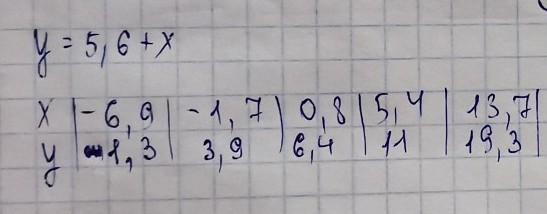 y = 5,6 + x
x | -6,9 | -1,7 | 0,8 | 5,4 | 13,7 |
y | -1,3 | 3,9 | 6,4 | 11 | 19,3 |